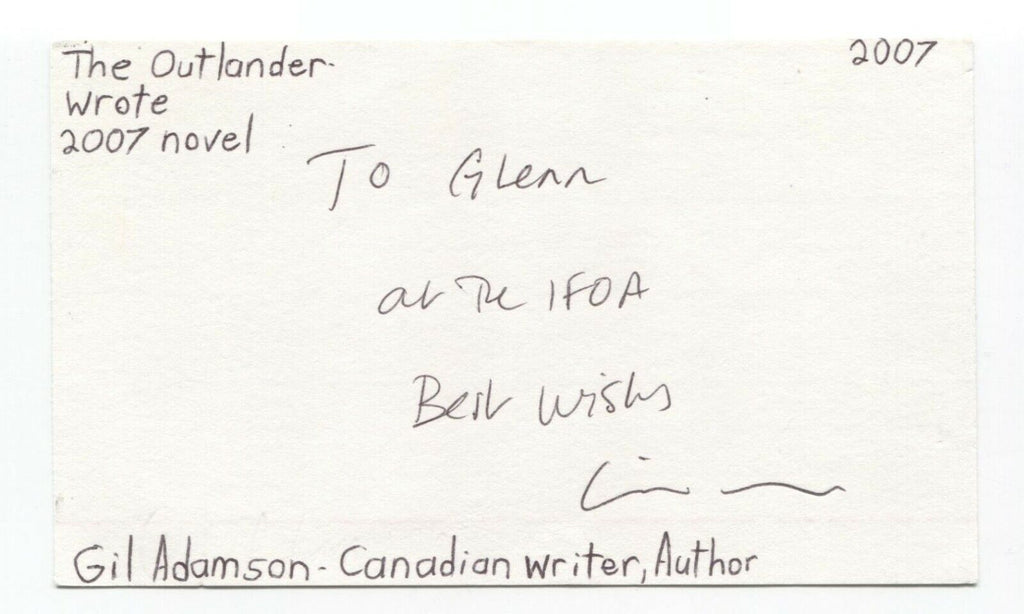 The Outlander.
2007
Wrote
2007 novel
To Glenn
at The IFOA
Best Wishes
Gil Adamson - Canadian writer, Author